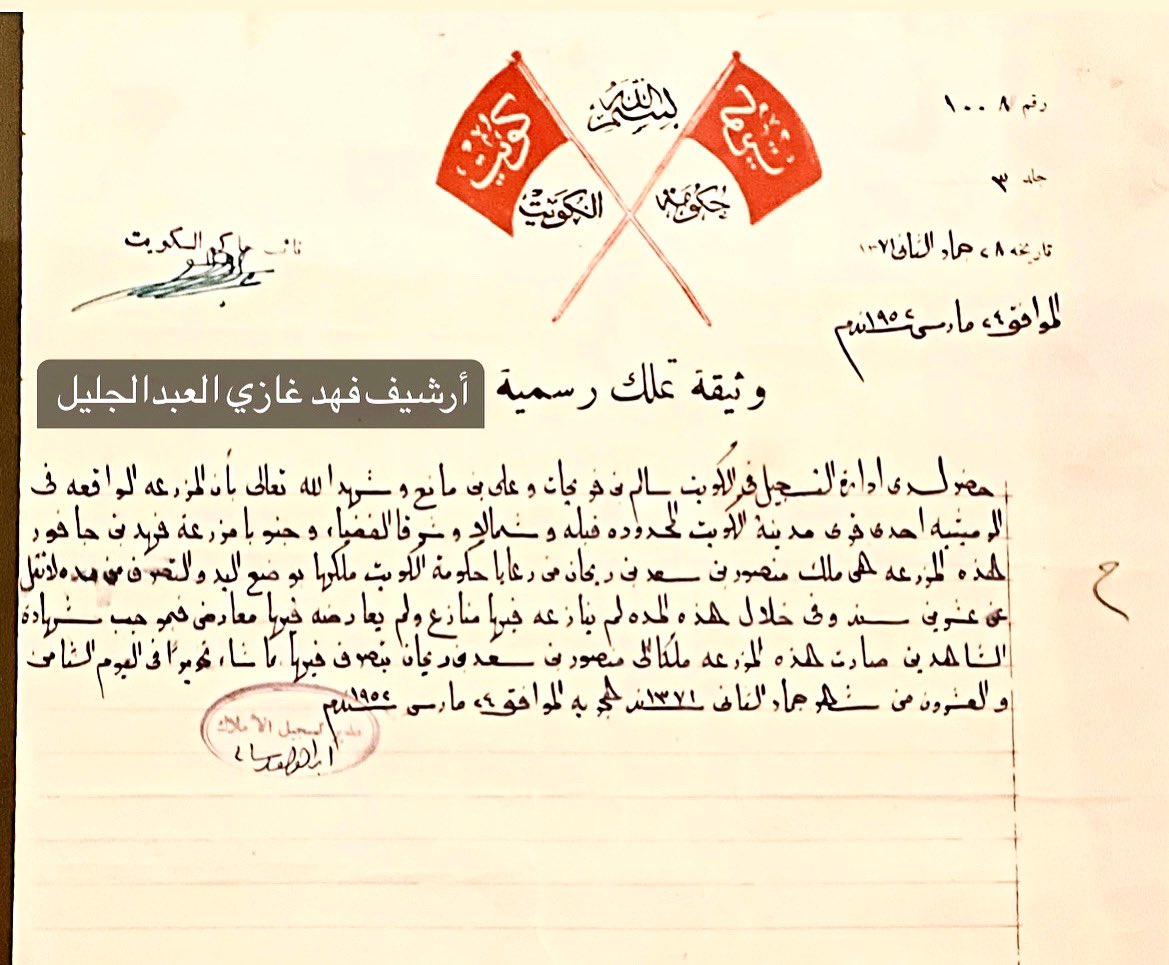 بسم الله
كويت
حكومة الكويت
رقم ١٠٠٨
جلد ٣
تاريخه ٢٨ جماد الثانى ١٣٧١
الموافق ٢٤ مارس ١٩٥٢م
نائب حاكم الكويت
وثيقة تملك رسمية
أرشيف فهد غازي العبدالجليل
حضر لدى ادارة التسجيل فى الكويت سالم بن فويجات وعلى بن مانع وشهدا لله تعالى بأن المزرعه الواقعه فى
الرميثيه احدى قرى مدينة الكويت المحدوده قبله وشمالا وشرقا الفضاء، وجنوبا مزرعة فهد بن جافور
هذه المزرعه هى ملك منصور بن سعد بن ريحان من رعايا حكومة الكويت ملكها بوضع اليد والتصرف من مده لا تقل
عن عشرين سنه وفى خلال هذه المده لم ينازعه فيها منازع ولم يعارضه فيها معارض فبموجب شهادة
الشاهدين صارت هذه المزرعه ملكا الى منصور بن سعد بن ريحان يتصرف فيها ما شاء، تحريرًا فى اليوم الثامن
والعشرون من شهر جماد الثانى ١٣٧١ هجريه الموافق ٢٤ مارس ١٩٥٢م
مدير تسجيل الأملاك
ح